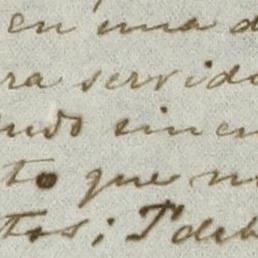 en una d
ra servido
endo sincer
to que n
tos; I deb